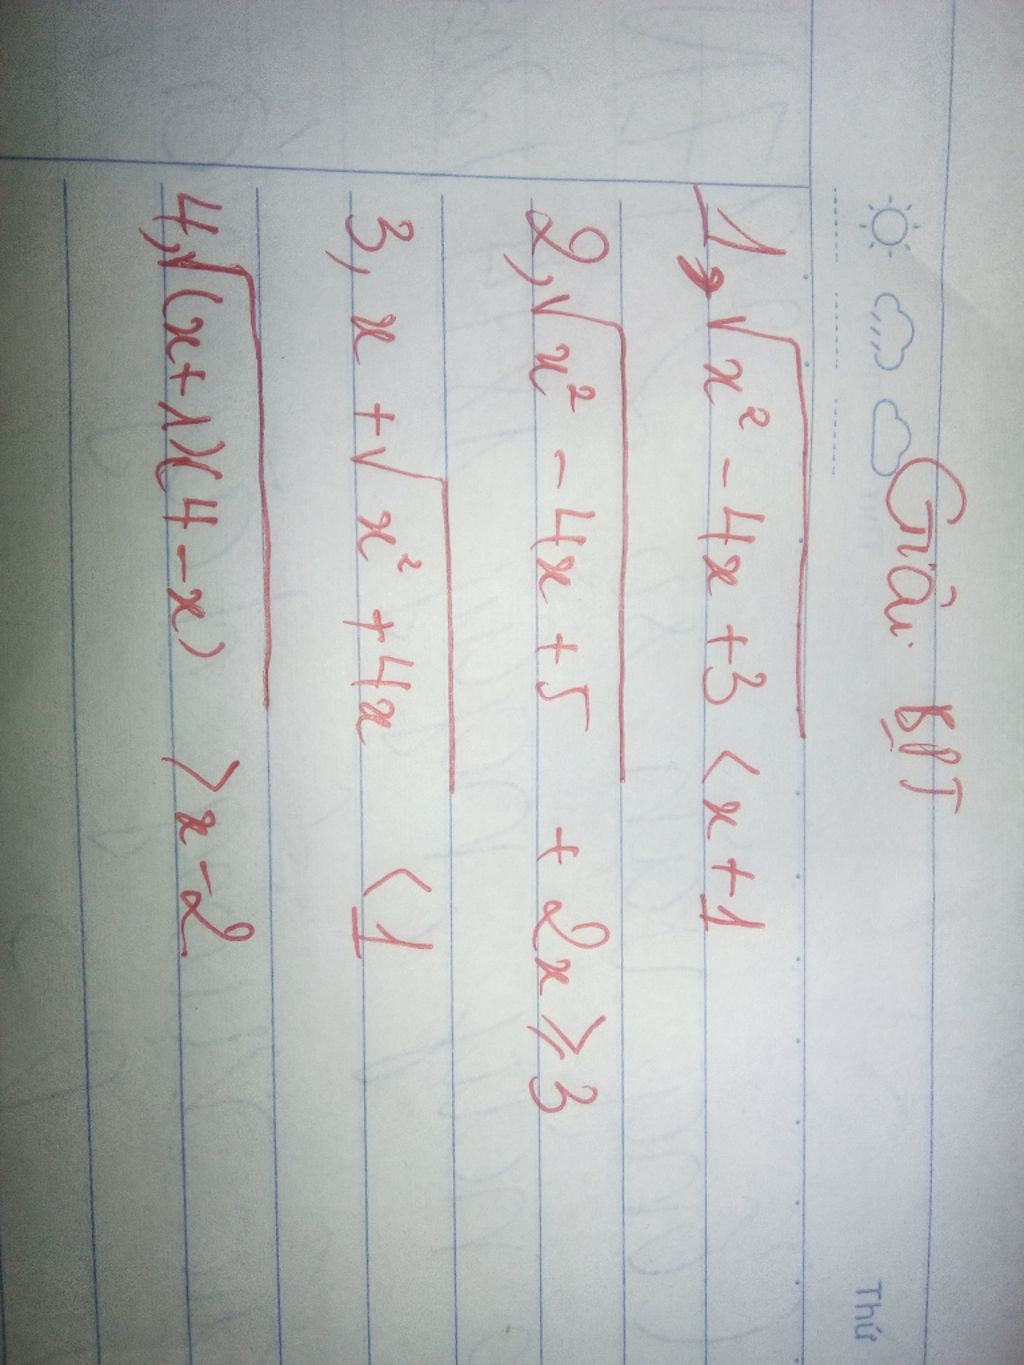 Giải BPT
1, √(x² - 4x + 3) < x + 1
2, √(x² - 4x + 5) + 2x ≥ 3
3, x + √(x² + 4x) < 1
4, √((x+1)(4-x)) > x - 2
Thứ